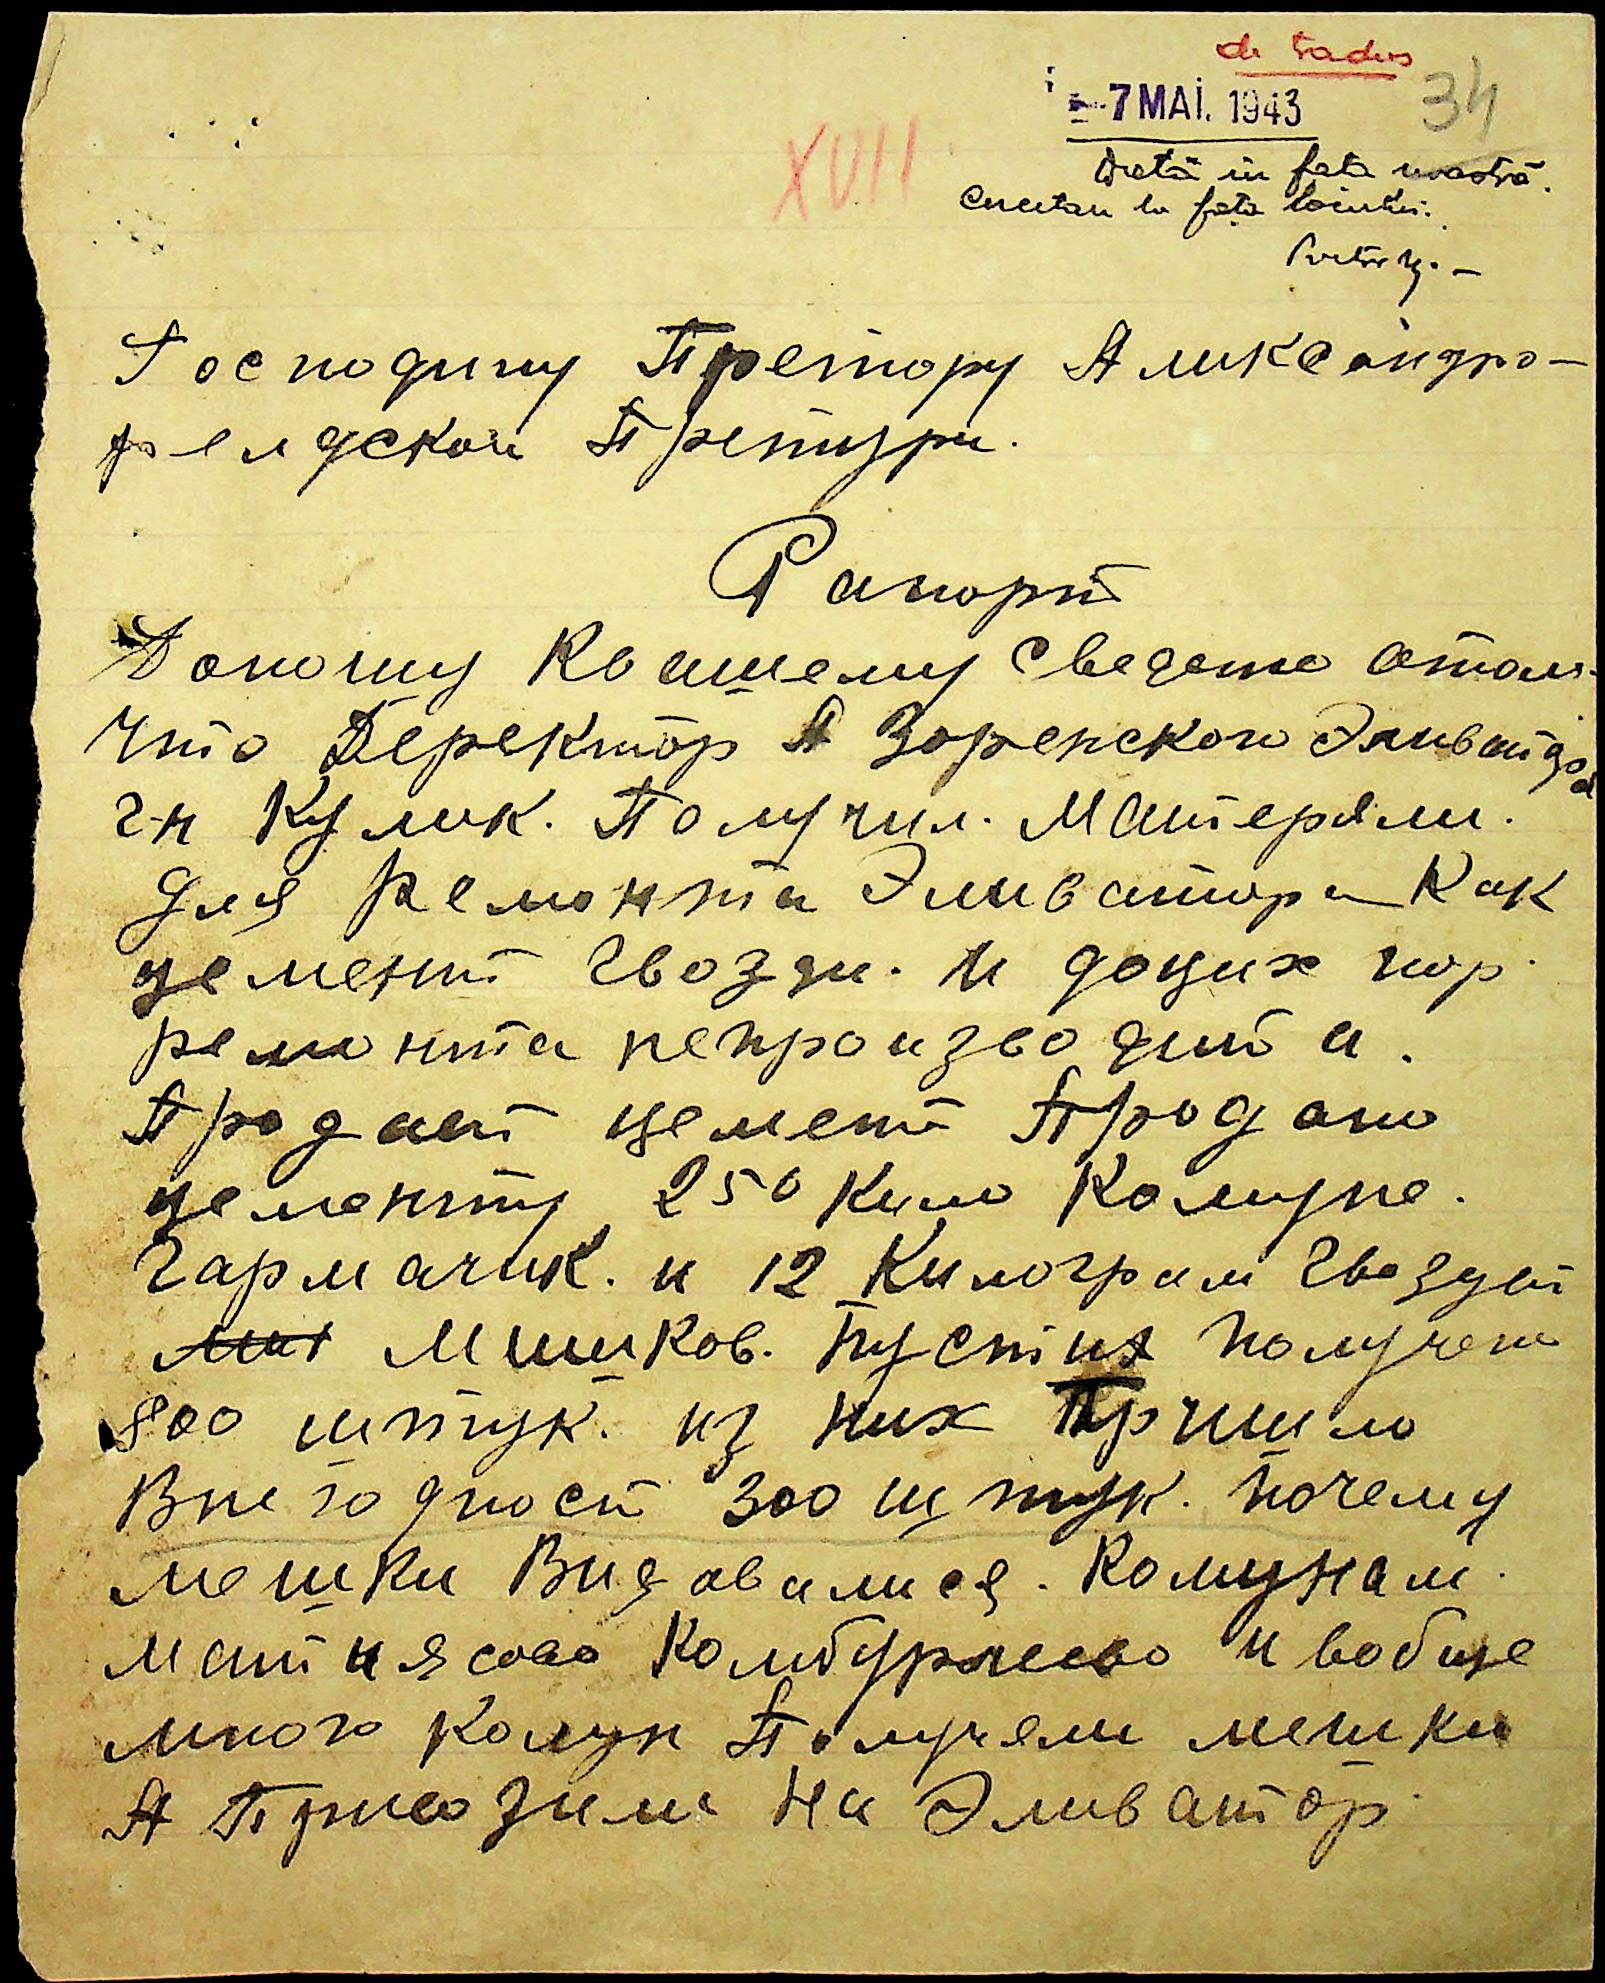 de tradus
- 7 MAI. 1943
34
XVII
Dată in fata noastră.
Cercetare la fața locului.
Господину Претору Аликсандро-
фелдской Претури.
Рапорт
Доношу Квашему сведению отом
что Деректор А Зоренского Эливатора
г-н Кулик. Получил. Матерялы.
для Ремонта Эливатора Как
цемент гвозди. и досих пор.
ремонта непроизводит а.
Продает цемент Продано
цементу 250 Кило Комуне.
Гармачик. и 12 Килограм гвоздей
Мишков. Пустих получено
800 штук. из них Пришло
Внегодност 300 штук. почему
мешки Видавалися. Комунам.
Матиясово Комбурлеево и вобще
много Комун Получяли мешки
А Привозили На Эливатор.